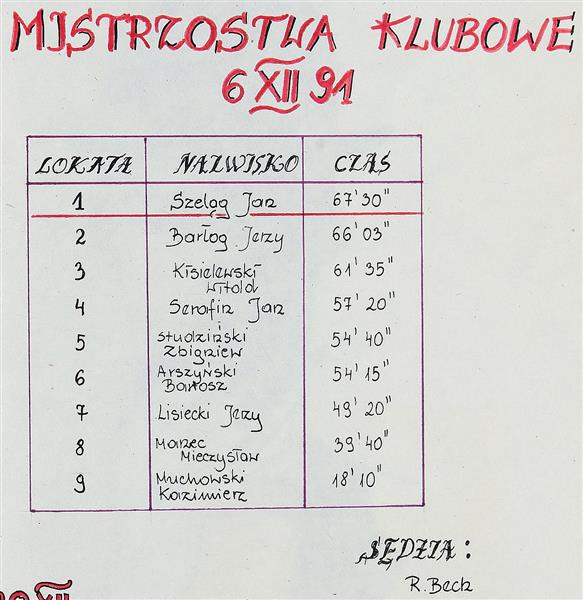 MISTRZOSTWA KLUBOWE
6 XII 91
LOKATA NAZWISKO CZAS
1 Szeląg Jan 67'30"
2 Barłog Jerzy 66'03"
3 Kisielewski Witold 61'35"
4 Serafin Jan 57'20"
5 Studziński Zbigniew 54'40"
6 Arszyński Bartosz 54'15"
7 Lisiecki Jerzy 49'20"
8 Marzec Mieczysław 39'40"
9 Muchowski Kazimierz 18'10"
SĘDZIA:
R. Beck
XII